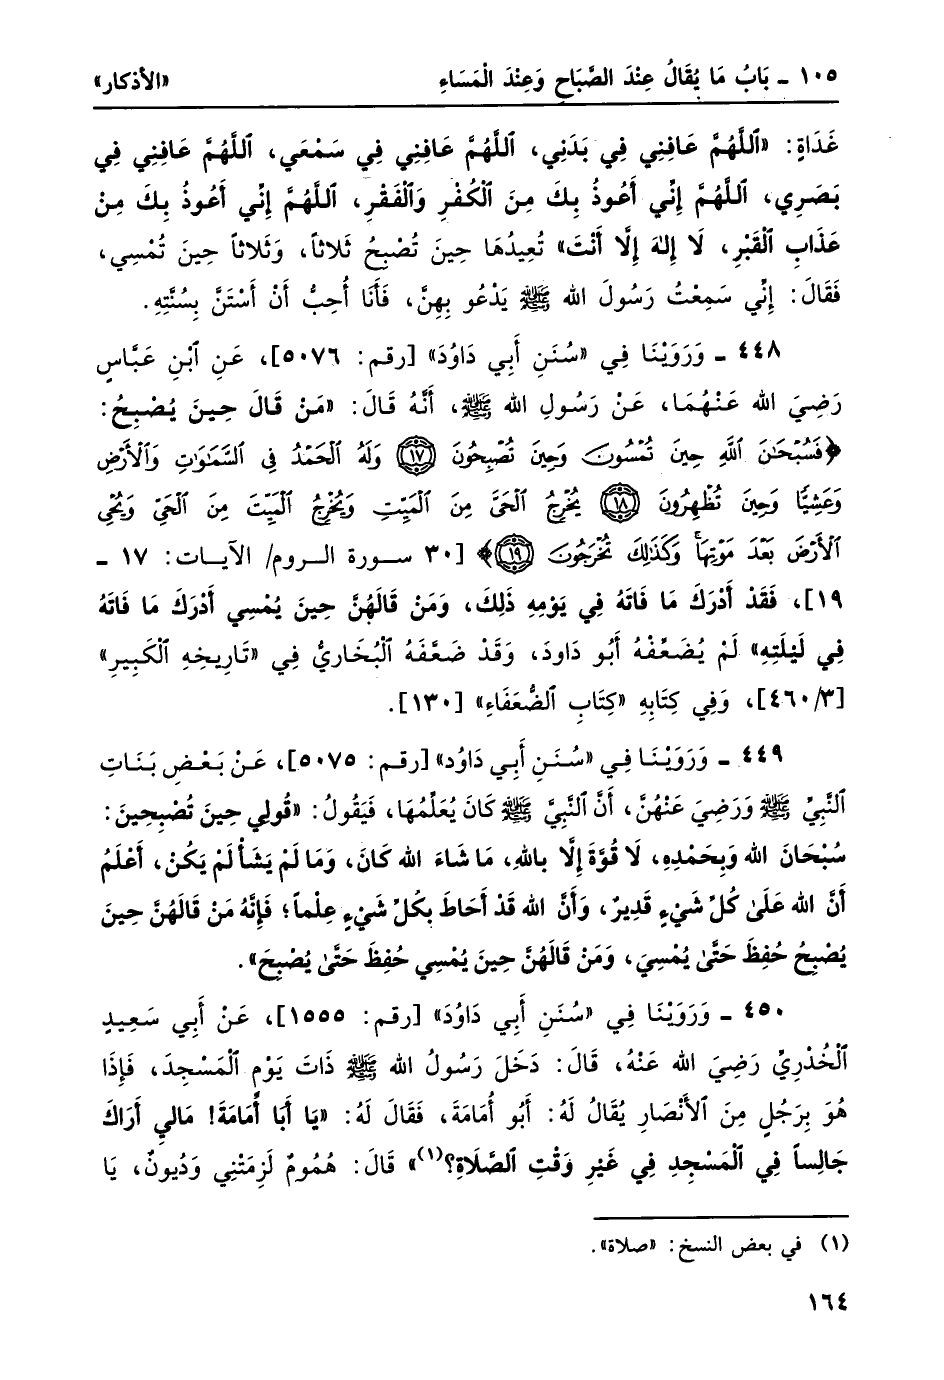 ١٠٥ ـ بَابُ مَا يُقَالُ عِنْدَ الصَّبَاحِ وَعِنْدَ الْمَسَاءِ «الأذكار»
غَدَاةٍ: «اَللَّهُمَّ عَافِنِي فِي بَدَنِي، اَللَّهُمَّ عَافِنِي فِي سَمْعَي، اَللَّهُمَّ عَافِنِي فِي
بَصَرِي، اَللَّهُمَّ إِنِّي أَعُوذُ بِكَ مِنَ اَلْكُفْرِ وَاَلْفَقْرِ، اَللَّهُمَّ إِنِّي أَعُوذُ بِكَ مِنْ
عَذَابِ اَلْقَبْرِ، لَا إِلهَ إِلَّا أَنْتَ» تُعِيدُهَا حِينَ تُصْبِحُ ثَلاثاً، وَثَلاثاً حِينَ تُمْسِي،
فَقَالَ: إِنِّي سَمِعْتُ رَسُولَ الله ﷺ يَدْعُو بِهِنَّ، فَأَنَا أُحِبُّ أَنْ أَسْتَنَّ بِسُنَّتِهِ.
٤٤٨ ـ وَرَوَيْنَا فِي «سُنَنِ أَبِي دَاوُدَ» [رقم: ٥٠٧٦]، عَنِ اَبْنِ عَبَّاسٍ
رَضِيَ الله عَنْهُمَا، عَنْ رَسُولِ الله ﷺ، أَنَّهُ قَالَ: «مَنْ قَالَ حِينَ يُصْبِحُ:
﴿فَسُبْحَٰنَ ٱللَّهِ حِينَ تُمْسُونَ وَحِينَ تُصْبِحُونَ ١٧ وَلَهُ ٱلْحَمْدُ فِي ٱلسَّمَٰوَٰتِ وَٱلْأَرْضِ
وَعَشِيًّا وَحِينَ تُظْهِرُونَ ١٨ يُخْرِجُ ٱلْحَيَّ مِنَ ٱلْمَيِّتِ وَيُخْرِجُ ٱلْمَيِّتَ مِنَ ٱلْحَيِّ وَيُحْيِ
ٱلْأَرْضَ بَعْدَ مَوْتِهَا ۚ وَكَذَٰلِكَ تُخْرَجُونَ ١٩﴾ [٣٠ سورة الروم/ الآيات: ١٧ ـ
١٩]، فَقَدْ أَدْرَكَ مَا فَاتَهُ فِي يَوْمِهِ ذَلِكَ، وَمَنْ قَالَهُنَّ حِينَ يُمْسِي أَدْرَكَ مَا فَاتَهُ
فِي لَيْلَتِهِ» لَمْ يُضَعِّفْهُ أَبُو دَاودَ، وَقَدْ ضَعَّفَهُ اَلْبُخَارِيُّ فِي «تَارِيخِهِ اَلْكَبِيرِ»
[٤٦٠/٣]، وَفِي كِتَابِهِ «كِتَابِ اَلضُّعَفَاءِ» [١٣٠].
٤٤٩ ـ وَرَوَيْنَا فِي «سُنَنِ أَبِي دَاوُد» [رقم: ٥٠٧٥]، عَنْ بَعْضِ بَنَاتِ
اَلنَّبِيِّ ﷺ وَرَضِيَ عَنْهُنَّ، أَنَّ النَّبِيَّ ﷺ كَانَ يُعَلِّمُهَا، فَيَقُولُ: «قُولِي حِينَ تُصْبِحِينَ:
سُبْحَانَ الله وَبِحَمْدِهِ، لَا قُوَّةَ إِلَّا بالله، مَا شَاءَ الله كَانَ، وَمَا لَمْ يَشَأْ لَمْ يَكُنْ، أَعْلَمُ
أَنَّ الله عَلَىٰ كُلِّ شَيْءٍ قَدِيرٌ، وَأَنَّ الله قَدْ أَحَاطَ بِكُلِّ شَيْءٍ عِلْماً؛ فَإِنَّهُ مَنْ قَالَهُنَّ حِينَ
يُصْبِحُ حُفِظَ حَتَّىٰ يُمْسِيَ، وَمَنْ قَالَهُنَّ حِينَ يُمْسِي حُفِظَ حَتَّىٰ يُصْبِحَ».
٤٥٠ ـ وَرَوَيْنَا فِي «سُنَنِ أَبِي دَاوُدَ» [رقم: ١٥٥٥]، عَنْ أَبِي سَعِيدٍ
اَلْخُدْرِيِّ رَضِيَ الله عَنْهُ، قَالَ: دَخَلَ رَسُولُ الله ﷺ ذَاتَ يَوْمٍ اَلْمَسْجِدَ، فَإِذَا
هُوَ بِرَجُلٍ مِنَ اَلأَنْصَارِ يُقَالُ لَهُ: أَبُو أُمَامَةَ، فَقَالَ لَهُ: «يَا أَبَا أُمَامَةَ! مَالي أَرَاكَ
جَالِساً فِي اَلْمَسْجِدِ فِي غَيْرِ وَقْتِ اَلصَّلَاةِ؟(١)» قَالَ: هُمُومٌ لَزِمَتْنِي وَدُيونٌ، يَا
(١) في بعض النسخ: «صلاة».
١٦٤